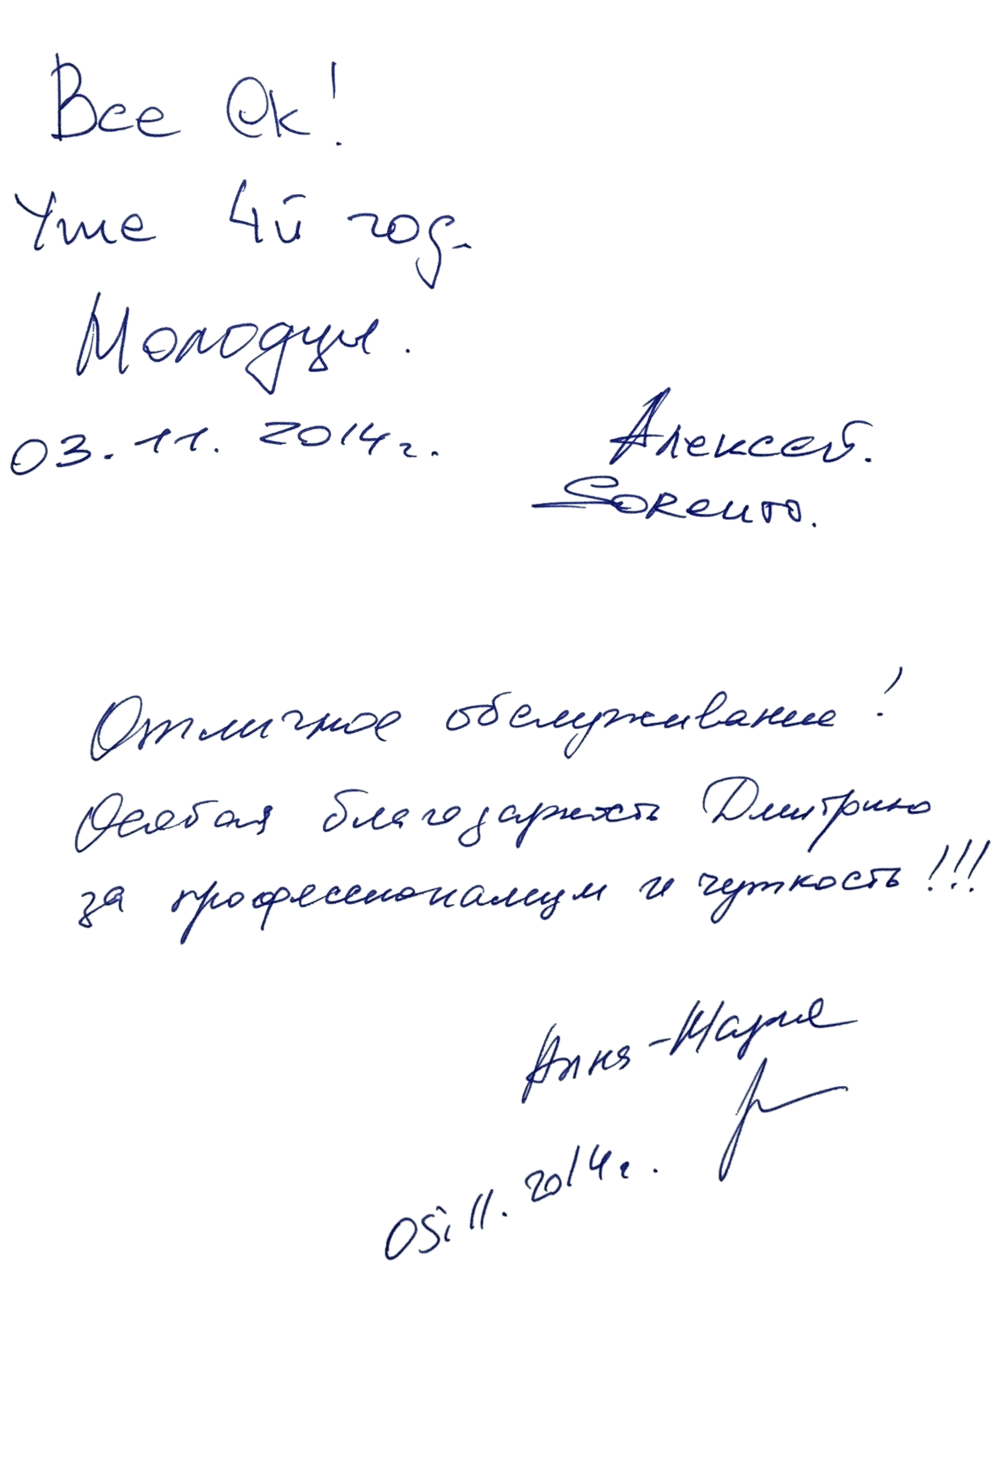 Все Ок!
Уже 4й год.
Молодцы.
03.11.2014г.
Алексей.
Sorento.
Отличное обслуживание!
Особая благодарность Дмитрию
за профессионализм и чуткость!!!
Анна-Мария
05.11.2014г.